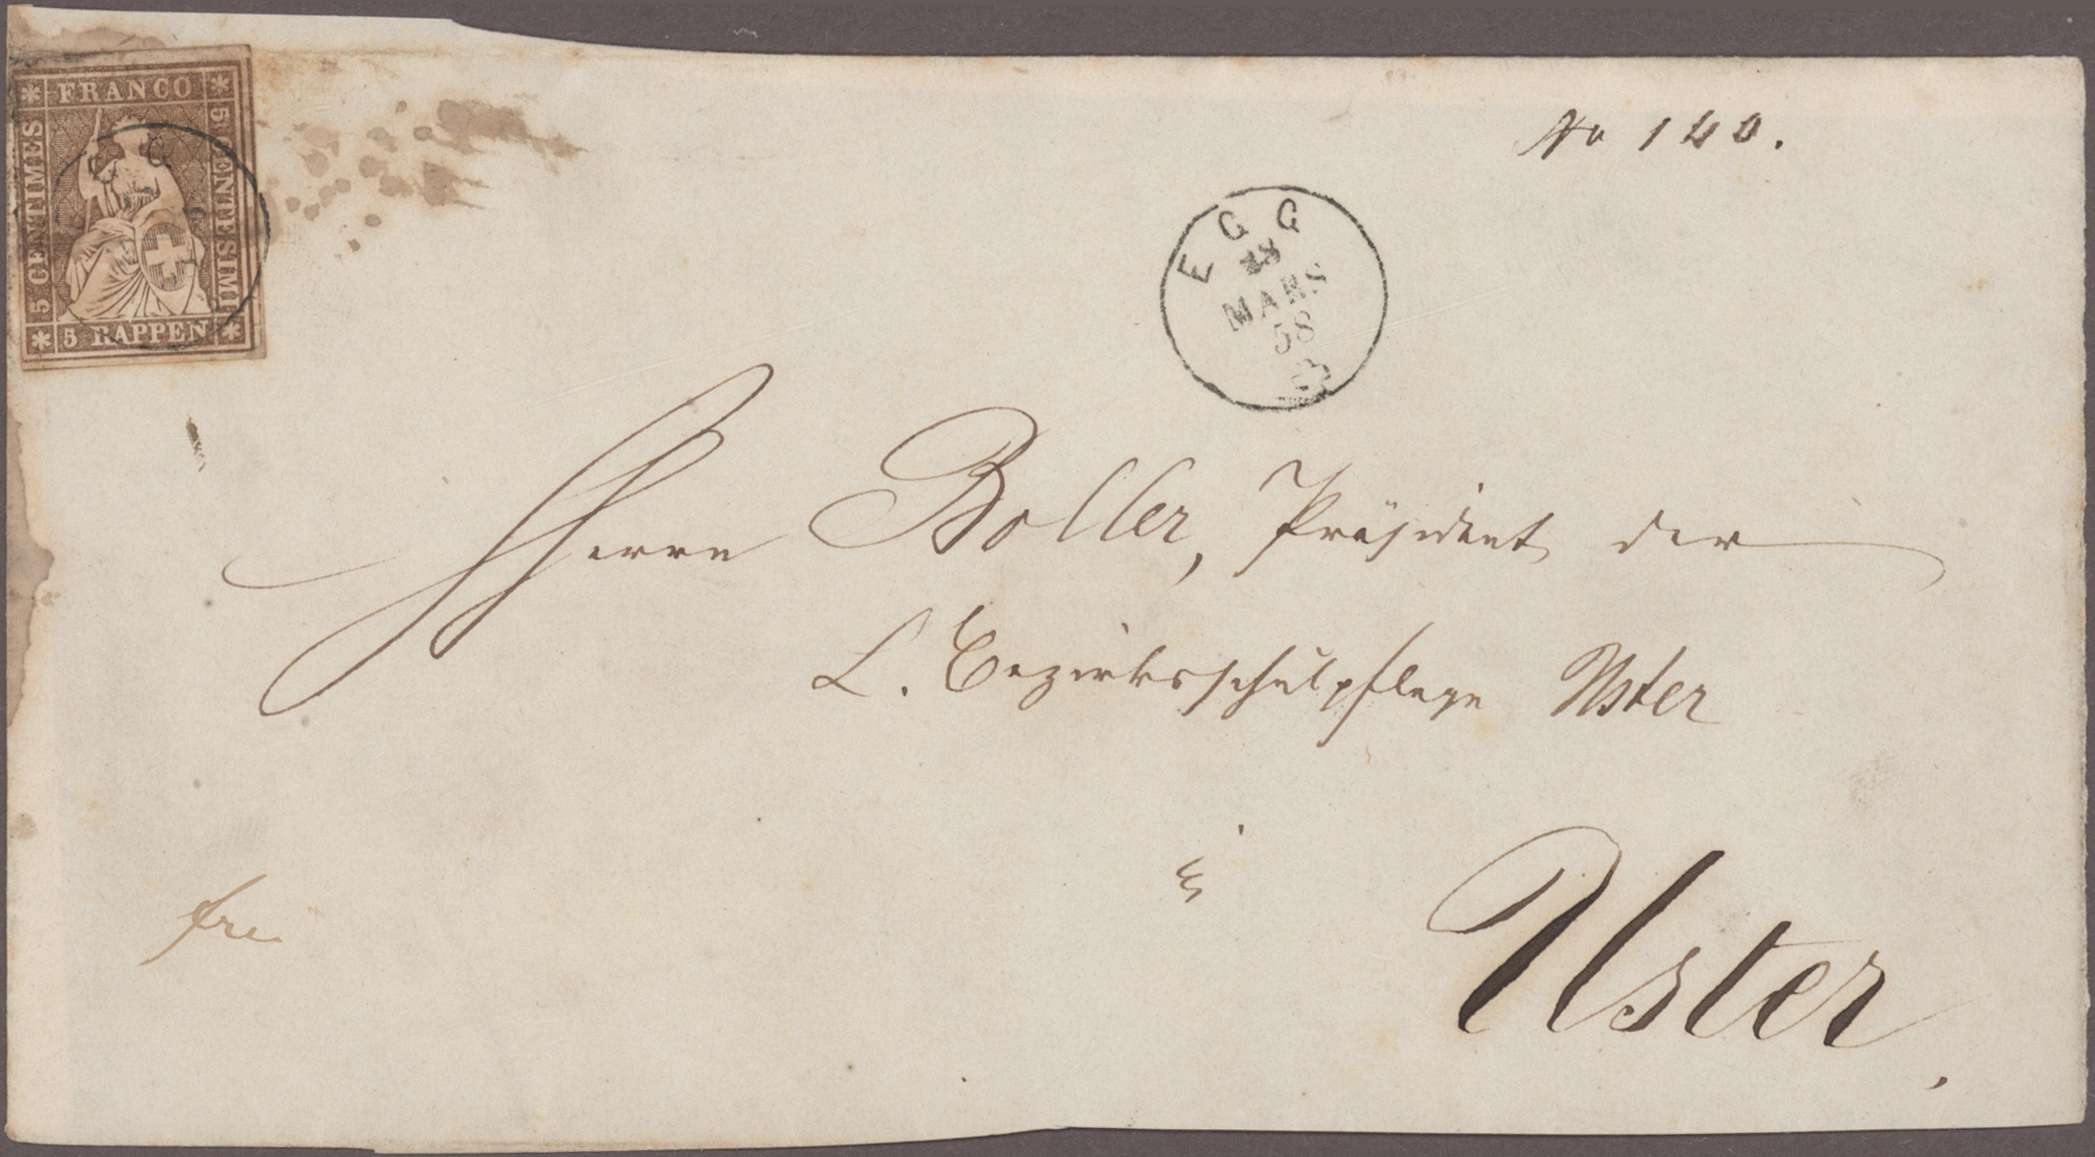 FRANCO
5 CENTIMES
5 CENTESIMI
5 RAPPEN
No 140.
EGG
MARS
58
Herrn Boller, Präsident der
L. Bezirksschulpflege Uster
Uster.